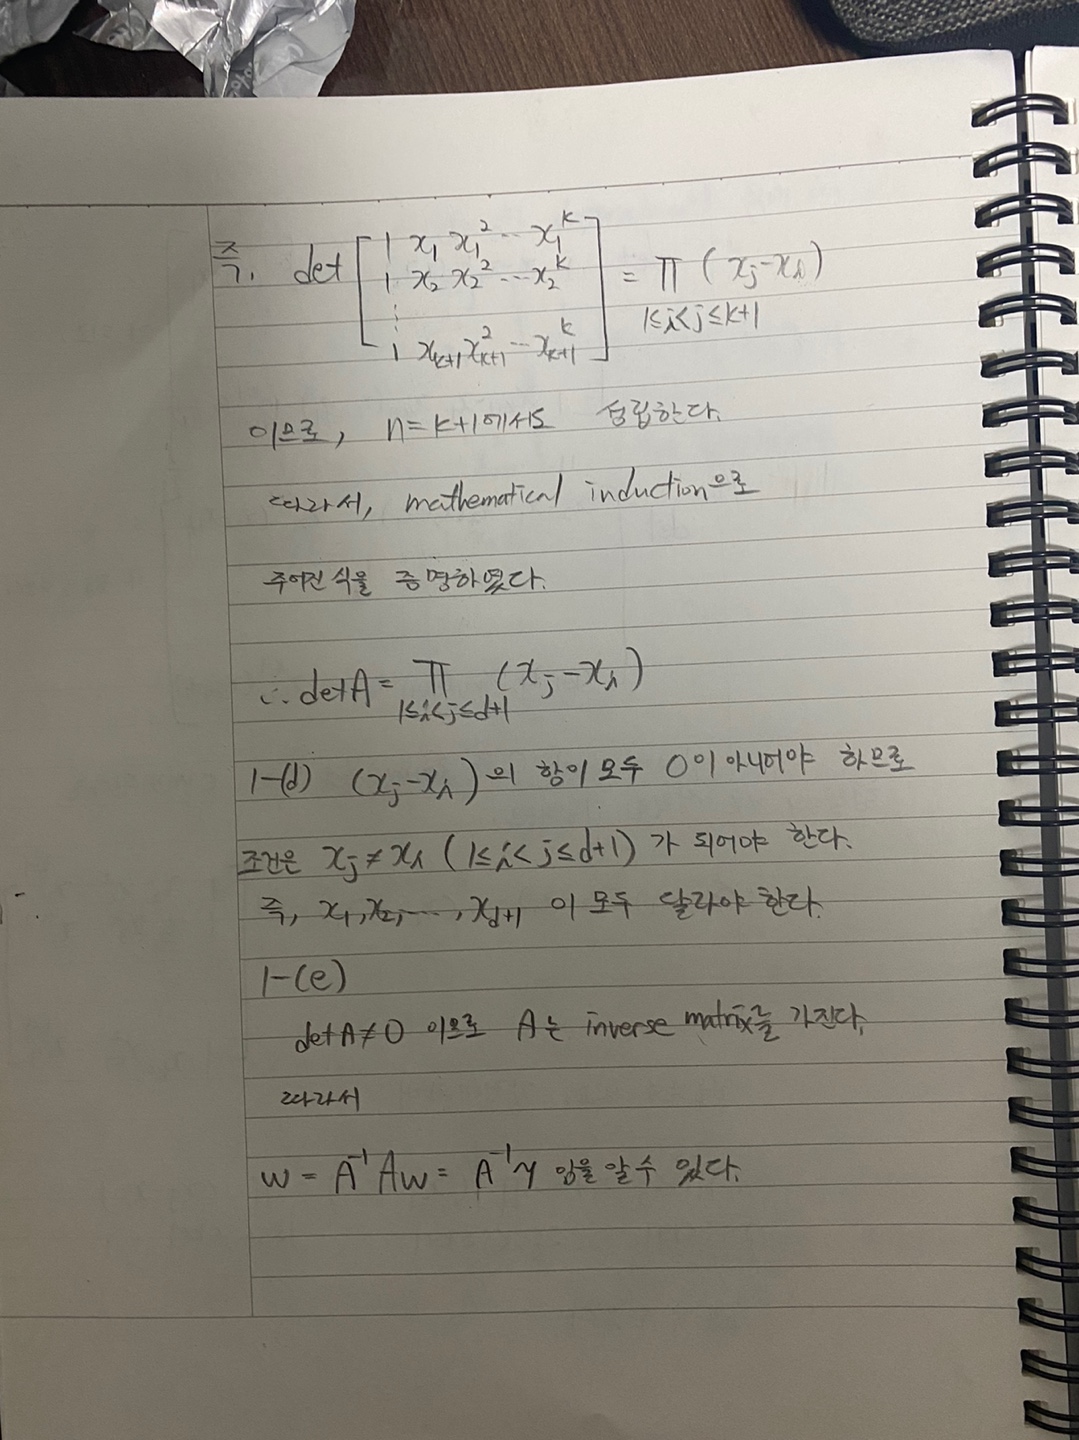 즉, det [ 1 x₁ x₁² ⋯ x₁ᵏ
1 x₂ x₂² ⋯ x₂ᵏ = Π (xⱼ-xᵢ)
⋮ 1≤i<j≤k+1
1 xₖ₊₁ xₖ₊₁² ⋯ xₖ₊₁ᵏ ]
이므로, n=k+1에서도 성립한다.
따라서, mathematical induction으로
주어진 식을 증명하였다.
∴ detA = Π (xⱼ-xᵢ)
1≤i<j≤d+1
1-(d) (xⱼ-xᵢ)의 항이 모두 0이 아니어야 하므로
조건은 xⱼ≠xᵢ (1≤i<j≤d+1) 가 되어야 한다.
즉, x₁,x₂,⋯,x_d+1 이 모두 달라야 한다.
1-(e)
detA≠0 이므로 A는 inverse matrix를 가진다.
따라서
w = A⁻¹Aw = A⁻¹y 임을 알 수 있다.